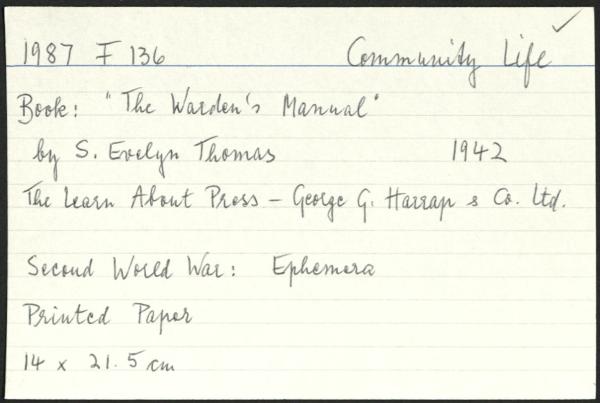 1987 F 136 Community Life
Book: "The Warden's Manual"
by S. Evelyn Thomas 1942
The Learn About Press - George G. Harrap & Co. Ltd.
Second World War: Ephemera
Printed Paper
14 x 21.5 cm